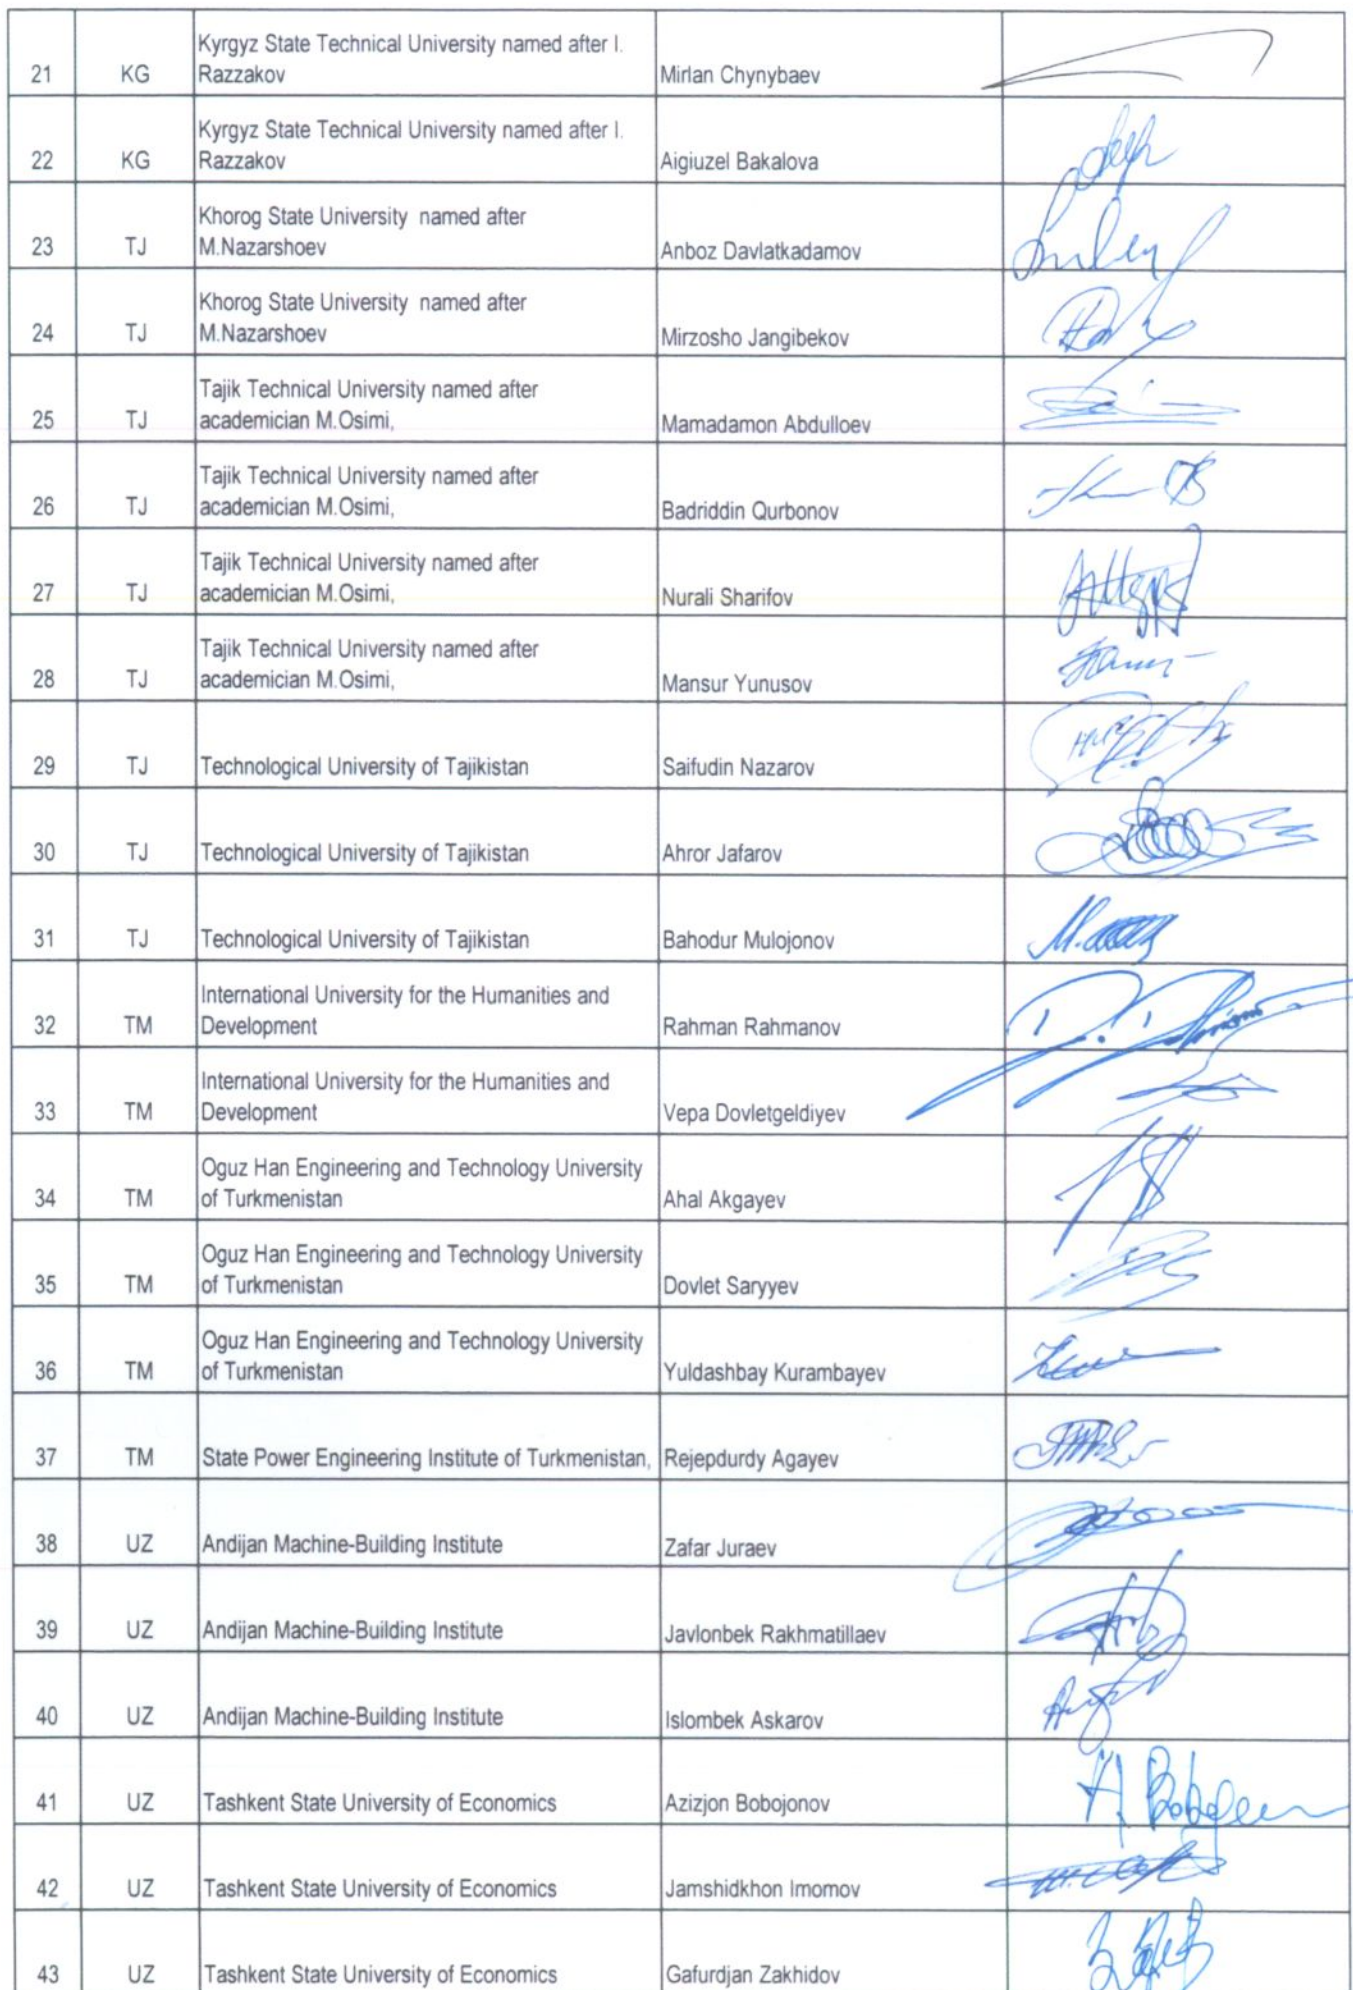 Kyrgyz State Technical University named after I.
21 KG Razzakov Mirlan Chynybaev
Kyrgyz State Technical University named after I.
22 KG Razzakov Aigiuzel Bakalova
Khorog State University named after
23 TJ M.Nazarshoev Anboz Davlatkadamov
Khorog State University named after
24 TJ M.Nazarshoev Mirzosho Jangibekov
Tajik Technical University named after
25 TJ academician M.Osimi, Mamadamon Abdulloev
Tajik Technical University named after
26 TJ academician M.Osimi, Badriddin Qurbonov
Tajik Technical University named after
27 TJ academician M.Osimi, Nurali Sharifov
Tajik Technical University named after
28 TJ academician M.Osimi, Mansur Yunusov
29 TJ Technological University of Tajikistan Saifudin Nazarov
30 TJ Technological University of Tajikistan Ahror Jafarov
31 TJ Technological University of Tajikistan Bahodur Mulojonov
International University for the Humanities and
32 TM Development Rahman Rahmanov
International University for the Humanities and
33 TM Development Vepa Dovletgeldiyev
Oguz Han Engineering and Technology University
34 TM of Turkmenistan Ahal Akgayev
Oguz Han Engineering and Technology University
35 TM of Turkmenistan Dovlet Saryyev
Oguz Han Engineering and Technology University
36 TM of Turkmenistan Yuldashbay Kurambayev
37 TM State Power Engineering Institute of Turkmenistan, Rejepdurdy Agayev
38 UZ Andijan Machine-Building Institute Zafar Juraev
39 UZ Andijan Machine-Building Institute Javlonbek Rakhmatillaev
40 UZ Andijan Machine-Building Institute Islombek Askarov
41 UZ Tashkent State University of Economics Azizjon Bobojonov
42 UZ Tashkent State University of Economics Jamshidkhon Imomov
43 UZ Tashkent State University of Economics Gafurdjan Zakhidov